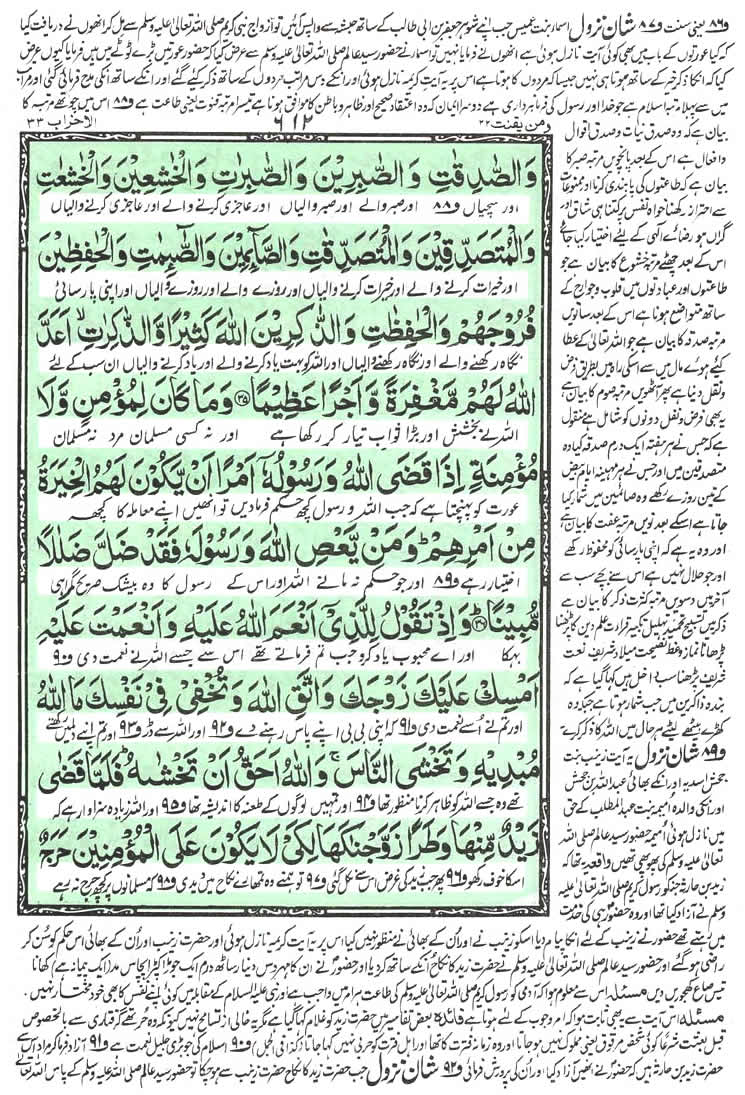 و۸۶ یعنی سنت و۸۷ شان نزول اسماء بنت عمیس جب اپنے شوہر جعفر بن ابی طالب کے ساتھ حبشہ سے واپس آئیں تو ازواج نبی کریم صلی اللہ تعالیٰ علیہ وسلم سے مل کر انھوں نے دریافت کیا
کہ کیا عورتوں کے باب میں بھی کوئی آیت نازل ہوئی ہے انھوں نے فرمایا نہیں تو اسماء نے حضور سید عالم صلی اللہ تعالیٰ علیہ وسلم سے عرض کیا کہ حضور عورتیں بڑے ٹوٹے میں ہیں فرمایا کیوں عرض
کیا کہ انکا ذکر خیر کے ساتھ ہوتا ہی نہیں جیسا کہ مردوں کا ہوتا ہے اس پر یہ آیت کریمہ نازل ہوئی اور انکے دس مراتب مردوں کے ساتھ ذکر کیے گئے اور انکے ساتھ انکی مدح فرمائی گئی اور مراتب
میں سے پہلا مرتبہ اسلام ہے جو خدا اور رسول کی فرمانبرداری ہے دوسرا ایمان کہ وہ اعتقاد صحیح اور ظاہر و باطن کا موافق ہونا ہے تیسرا مرتبہ قنوت یعنی طاعت ہے و۸۸ اس میں چوتھے مرتبہ کا
ومن یقنت ۲۲
۶۱۲
الاحزاب ۳۳
وَالصّٰدِقٰتِ وَالصّٰبِرِیْنَ وَالصّٰبِرٰتِ وَالْخٰشِعِیْنَ وَالْخٰشِعٰتِ
اور سچیاں و۸۸ اور صبر والے اور صبر والیاں اور عاجزی کرنے والے اور عاجزی کرنے والیاں
وَالْمُتَصَدِّقِیْنَ وَالْمُتَصَدِّقٰتِ وَالصَّآئِمِیْنَ وَالصّٰٓئِمٰتِ وَالْحٰفِظِیْنَ
اور خیرات کرنے والے اور خیرات کرنے والیاں اور روزے والے اور روزے والیاں اور اپنی پارسائی
فُرُوْجَهُمْ وَالْحٰفِظٰتِ وَالذّٰکِرِیْنَ اللّٰهَ کَثِیْرًا وَّالذّٰکِرٰتِ ۙ اَعَدَّ
نگاہ رکھنے والے اور نگاہ رکھنے والیاں اور اللہ کو بہت یاد کرنے والے اور یاد کرنے والیاں ان سب کے لئے
اللّٰهُ لَهُمْ مَّغْفِرَةً وَّاَجْرًا عَظِیْمًا ﴿۳۵﴾ وَمَا کَانَ لِمُؤْمِنٍ وَّلَا
اللہ نے بخشش اور بڑا ثواب تیار کر رکھا ہے اور نہ کسی مسلمان مرد نہ مسلمان
مُؤْمِنَةٍ اِذَا قَضَی اللّٰهُ وَرَسُوْلُهٗۤ اَمْرًا اَنْ یَّکُوْنَ لَهُمُ الْخِیَرَةُ
عورت کو پہنچتا ہے کہ جب اللہ و رسول کچھ حکم فرما دیں تو انھیں اپنے معاملہ کا کچھ
مِنْ اَمْرِهِمْ ؕ وَمَنْ یَّعْصِ اللّٰهَ وَرَسُوْلَهٗ فَقَدْ ضَلَّ ضَلٰلًا
اختیار رہے و۸۹ اور جو حکم نہ مانے اللہ اور اس کے رسول کا وہ بیشک صریح گمراہی
مُّبِیْنًا ﴿۳۶﴾ وَاِذْ تَقُوْلُ لِلَّذِیْۤ اَنْعَمَ اللّٰهُ عَلَیْهِ وَاَنْعَمْتَ عَلَیْهِ
بہکا اور اے محبوب یاد کرو جب تم فرماتے تھے اس سے جسے اللہ نے نعمت دی و۹۰
اَمْسِكْ عَلَیْكَ زَوْجَكَ وَاتَّقِ اللّٰهَ وَتُخْفِیْ فِیْ نَفْسِكَ مَا اللّٰهُ
اور تم نے اُسے نعمت دی و۹۱ کہ اپنی بی بی اپنے پاس رہنے دے و۹۲ اور اللہ سے ڈر و۹۳ اور تم اپنے دل میں رکھتے
مُبْدِیْهِ وَتَخْشَی النَّاسَ ۚ وَاللّٰهُ اَحَقُّ اَنْ تَخْشٰىهُ ؕ فَلَمَّا قَضٰی
تھے وہ جسے اللہ کو ظاہر کرنا منظور تھا و۹۴ اور تمہیں لوگوں کے طعنہ کا اندیشہ تھا و۹۵ اور اللہ زیادہ سزاوار ہے کہ
زَیْدٌ مِّنْهَا وَطَرًا زَوَّجْنٰکَهَا لِکَیْ لَا یَکُوْنَ عَلَی الْمُؤْمِنِیْنَ حَرَجٌ
اسکا خوف رکھو و۹۶ پھر جب زید کی غرض اس سے نکل گئی و۹۷ تو ہم نے وہ تمہارے نکاح میں دیدی و۹۸ کہ مسلمانوں پر کچھ حرج نہ رہے
بیان ہے کہ وہ صدق نیات و صدق اقوال
و افعال ہے اس کے بعد پانچویں مرتبہ صبر کا
بیان ہے کہ طاعتوں کی پابندی کرنا اور ممنوعات
سے احتراز رکھنا خواہ نفس پر کتنا ہی شاق اور
گراں ہو رضائے الٰہی کے لئے اختیار کیا جائے
اس کے بعد چھٹے مرتبہ خشوع کا بیان ہے جو
طاعتوں اور عبادتوں میں قلوب و جوارح کے
ساتھ متواضع ہونا ہے اس کے بعد ساتویں
مرتبہ صدقہ کا بیان ہے جو اللہ تعالیٰ کے عطا
کیے ہوئے مال میں سے اسکی راہ میں بطریق فرض
و نفل دینا ہے پھر آٹھویں مرتبہ صوم کا بیان ہے
یہ بھی فرض و نفل دونوں کو شامل ہے منقول
ہے کہ جس نے ہر ہفتہ ایک درم صدقہ کیا وہ
متصدقین میں اور جس نے ہر مہینہ ایام بیض
کے تین روزے رکھے وہ صائمین میں شمار کیا
جاتا ہے اسکے بعد نویں مرتبہ عفت کا بیان ہے
اور وہ یہ ہے کہ اپنی پارسائی کو محفوظ رکھے
اور جو حلال نہیں ہے اس سے بچے سب سے
آخر میں دسویں مرتبہ کثرت ذکر کا بیان ہے
ذکر میں تسبیح تحمید تہلیل تکبیر قرات علم دین کا پڑھنا
پڑھانا نماز وعظ نصیحت میلاد شریف نعت
شریف پڑھنا سب داخل ہیں کہا گیا ہے کہ
بندہ ذاکرین میں جب شمار ہوتا ہے جبکہ وہ
کھڑے بیٹھے لیٹے ہر حال میں اللہ کا ذکر کرے
و۸۹ شان نزول یہ آیت زینب بنت
جحش اسدیہ اور انکے بھائی عبداللہ بن جحش
اور انکی والدہ امیمہ بنت عبدالمطلب کے حق
میں نازل ہوئی امیمہ حضور سید عالم صلی اللہ
تعالیٰ علیہ وسلم کی پھوپھی تھیں واقعہ یہ تھا کہ
زید بن حارثہ جنکو رسول کریم صلی اللہ تعالیٰ علیہ
وسلم نے آزاد کیا تھا اور وہ حضور ہی کی خدمت
میں رہتے تھے حضور نے زینب کے لئے انکا پیام دیا اسکو زینب نے اور ان کے بھائی نے منظور نہیں کیا اس پر یہ آیت کریمہ نازل ہوئی اور حضرت زینب اور ان کے بھائی اس حکم کو سن کر
راضی ہو گئے اور حضور سید عالم صلی اللہ تعالیٰ علیہ وسلم نے حضرت زید کا نکاح انکے ساتھ کر دیا اور حضور نے ان کا مہر دس دینار ساٹھ درم ایک جوڑا کپڑا پچاس مد (ایک پیمانہ ہے) کھانا
تیس صاع کھجوریں دیں مسئلہ اس سے معلوم ہوا کہ آدمی کو رسول کریم صلی اللہ تعالیٰ علیہ وسلم کی طاعت ہر امر میں واجب ہے اور نبی علیہ السلام کے مقابلہ میں کوئی اپنے نفس کا بھی خود مختار نہیں۔
مسئلہ اس آیت سے یہ بھی ثابت ہوا کہ امر وجوب کے لئے ہوتا ہے فائدہ بعض تفاسیر میں حضرت زید کو غلام کہا گیا ہے مگر یہ خالی از تسامح نہیں کیونکہ وہ حُر تھے گرفتاری سے بالخصوص
قبل بعثت شرعاً کوئی شخص مرقوق یعنی مملوک نہیں ہو جاتا اور وہ زمانہ فترت کا تھا اور اہل فترت کو حربی نہیں کہا جاتا (کذا فی الجمل) و۹۰ اسلام کی جو بڑی جلیل نعمت ہے و۹۱ آزاد فرما کر مراد اس سے
حضرت زید بن حارثہ ہیں کہ حضور نے انھیں آزاد کیا اور ان کی پرورش فرمائی و۹۲ شان نزول جب حضرت زید کا نکاح حضرت زینب سے ہو چکا تو حضور سید عالم صلی اللہ تعالیٰ علیہ وسلم کے پاس اللہ تعالیٰ